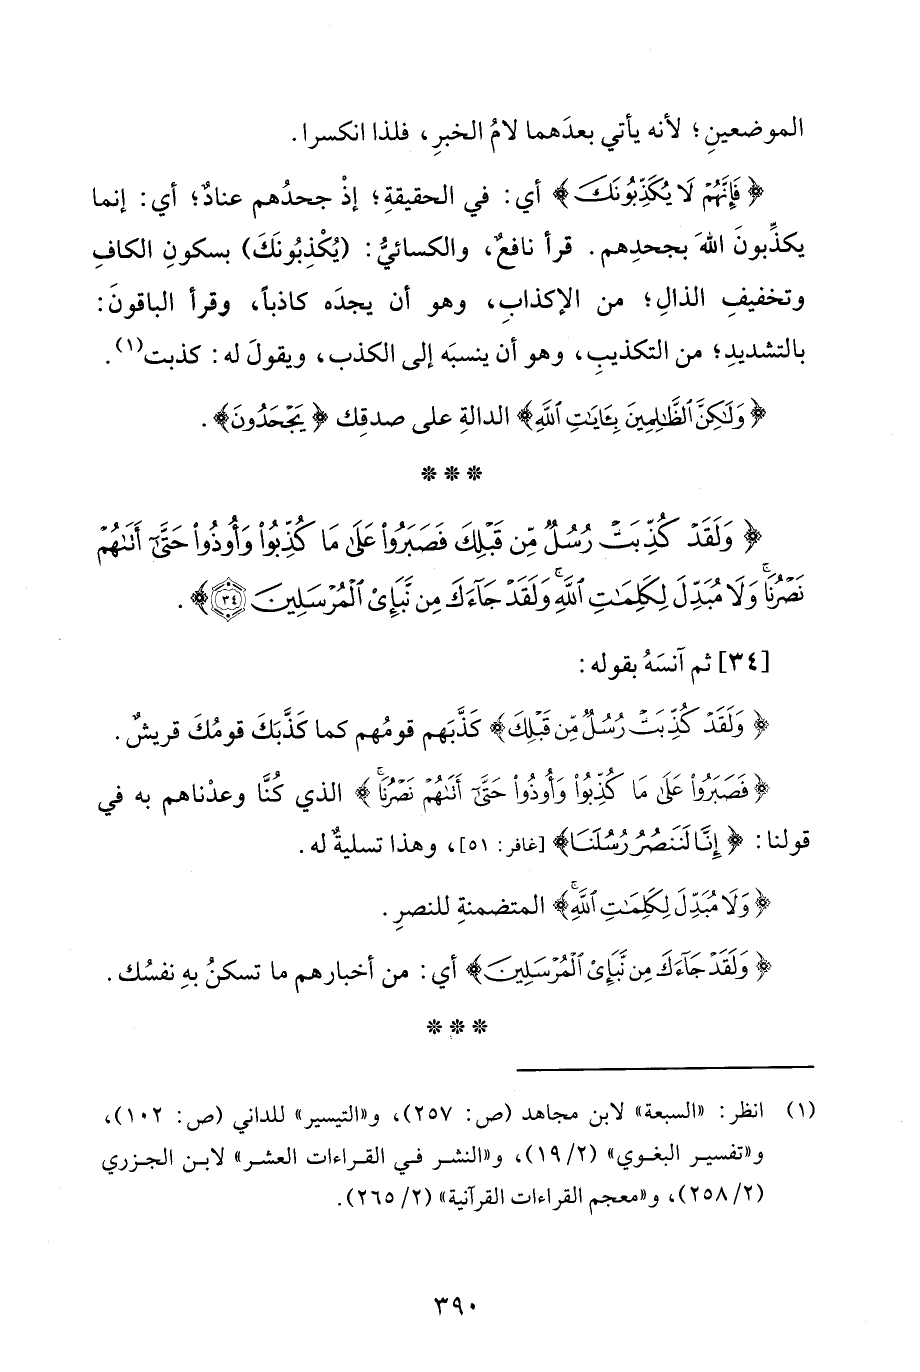 الموضعينِ؛ لأنه يأتي بعدَهما لامُ الخبرِ، فلذا انكسرا.
﴿فَإِنَّهُمْ لَا يُكَذِّبُونَكَ﴾ أي: في الحقيقةِ؛ إذْ جحدُهم عنادٌ؛ أي: إنما
يكذِّبونَ اللهَ بجحدِهم. قرأ نافعٌ، والكسائيُّ: (يُكْذِبُونَكَ) بسكونِ الكافِ
وتخفيفِ الذالِ؛ من الإكذابِ، وهو أن يجدَه كاذباً، وقرأ الباقونَ:
بالتشديدِ؛ من التكذيبِ، وهو أن ينسبَه إلى الكذب، ويقولَ له: كذبت(١).
﴿وَلَٰكِنَّ ٱلظَّٰلِمِينَ بِـَٔايَٰتِ ٱللَّهِ﴾ الدالةِ على صدقِك ﴿يَجْحَدُونَ﴾.
* * *
﴿وَلَقَدْ كُذِّبَتْ رُسُلٌ مِّن قَبْلِكَ فَصَبَرُواْ عَلَىٰ مَا كُذِّبُواْ وَأُوذُواْ حَتَّىٰٓ أَتَىٰهُمْ
نَصْرُنَا ۚ وَلَا مُبَدِّلَ لِكَلِمَٰتِ ٱللَّهِ ۚ وَلَقَدْ جَآءَكَ مِن نَّبَإِىْ ٱلْمُرْسَلِينَ ٣٤﴾.
[٣٤] ثم آنسَهُ بقوله:
﴿وَلَقَدْ كُذِّبَتْ رُسُلٌ مِّن قَبْلِكَ﴾ كَذَّبَهم قومُهم كما كَذَّبَكَ قومُكَ قريشٌ.
﴿فَصَبَرُواْ عَلَىٰ مَا كُذِّبُواْ وَأُوذُواْ حَتَّىٰٓ أَتَىٰهُمْ نَصْرُنَا ۚ﴾ الذي كُنَّا وعدْناهم به في
قولنا: ﴿إِنَّا لَنَنصُرُ رُسُلَنَا﴾ [غافر: ٥١]، وهذا تسليةٌ له.
﴿وَلَا مُبَدِّلَ لِكَلِمَٰتِ ٱللَّهِ ۚ﴾ المتضمنةِ للنصرِ.
﴿وَلَقَدْ جَآءَكَ مِن نَّبَإِىْ ٱلْمُرْسَلِينَ﴾ أي: من أخبارهم ما تسكنُ بهِ نفسُك.
* * *
(١) انظر: «السبعة» لابن مجاهد (ص: ٢٥٧)، و«التيسير» للداني (ص: ١٠٢)،
و«تفسير البغوي» (٢/ ١٩)، و«النشر في القراءات العشر» لابن الجزري
(٢/ ٢٥٨)، و«معجم القراءات القرآنية» (٢/ ٢٦٥).
٣٩٠